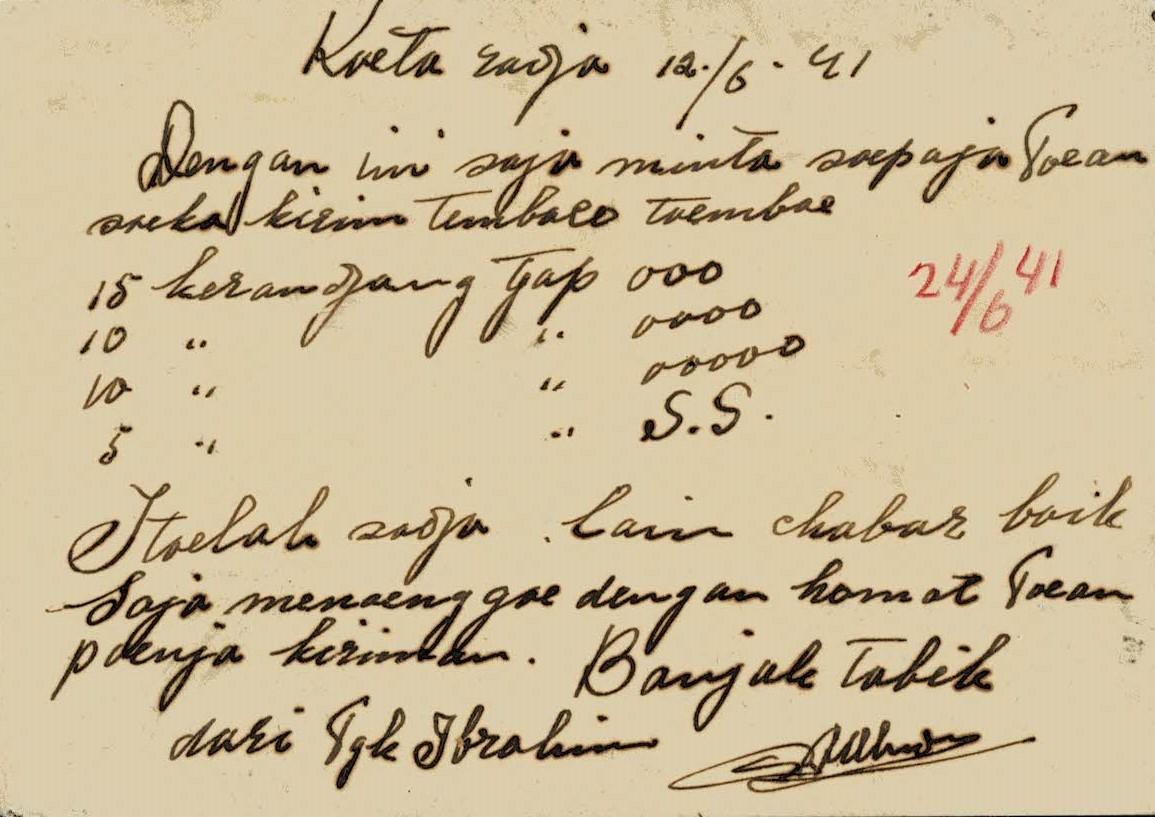 Koeta radja 12./6 - 41
Dengan ini saja minta soepaja Toean
soeka kirim tembaco toemboe
15 kerandjang Tjap ooo
10 " " oooo
10 " " ooooo
5 " " S.S.
24/6 41
Itoelah sadja. lain chabar baik
Saja menoenggoe dengan homat Toean
poenja kiriman. Banjak Tabik
dari Tgk Ibrahim